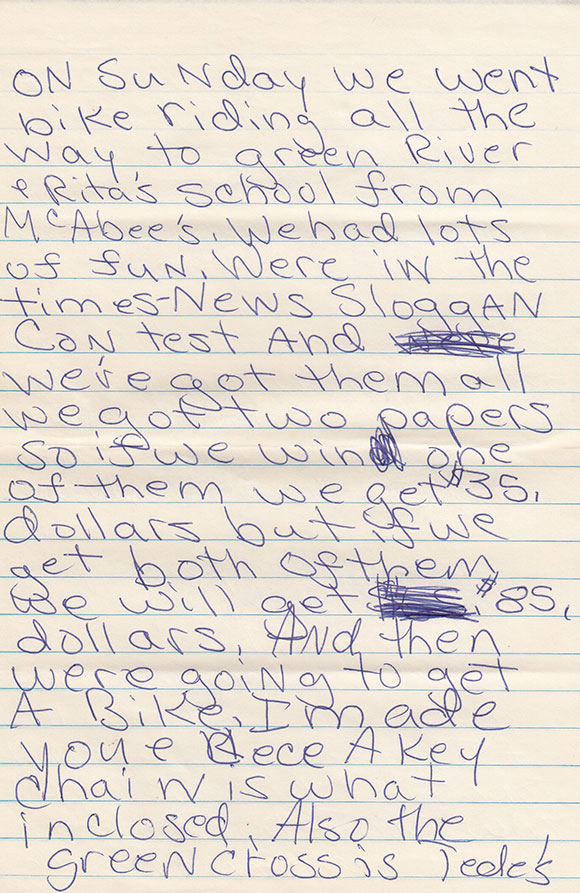 ON SuNday we went
bike riding all the
way to green River
& Rita's school from
McAbee's. We had lots
of fuN. Were iN the
times-News SloggAN
CoN test And
we're got them all
we got two papers
so if we win one
of them we get $35.
dollars but if we
get both of them
we will get $85.
dollars. ANd then
were goiNg to get
A Bike. I made
you e Cece A key
chaiN is what
inclosed. Also the
greeN cross is Tede's